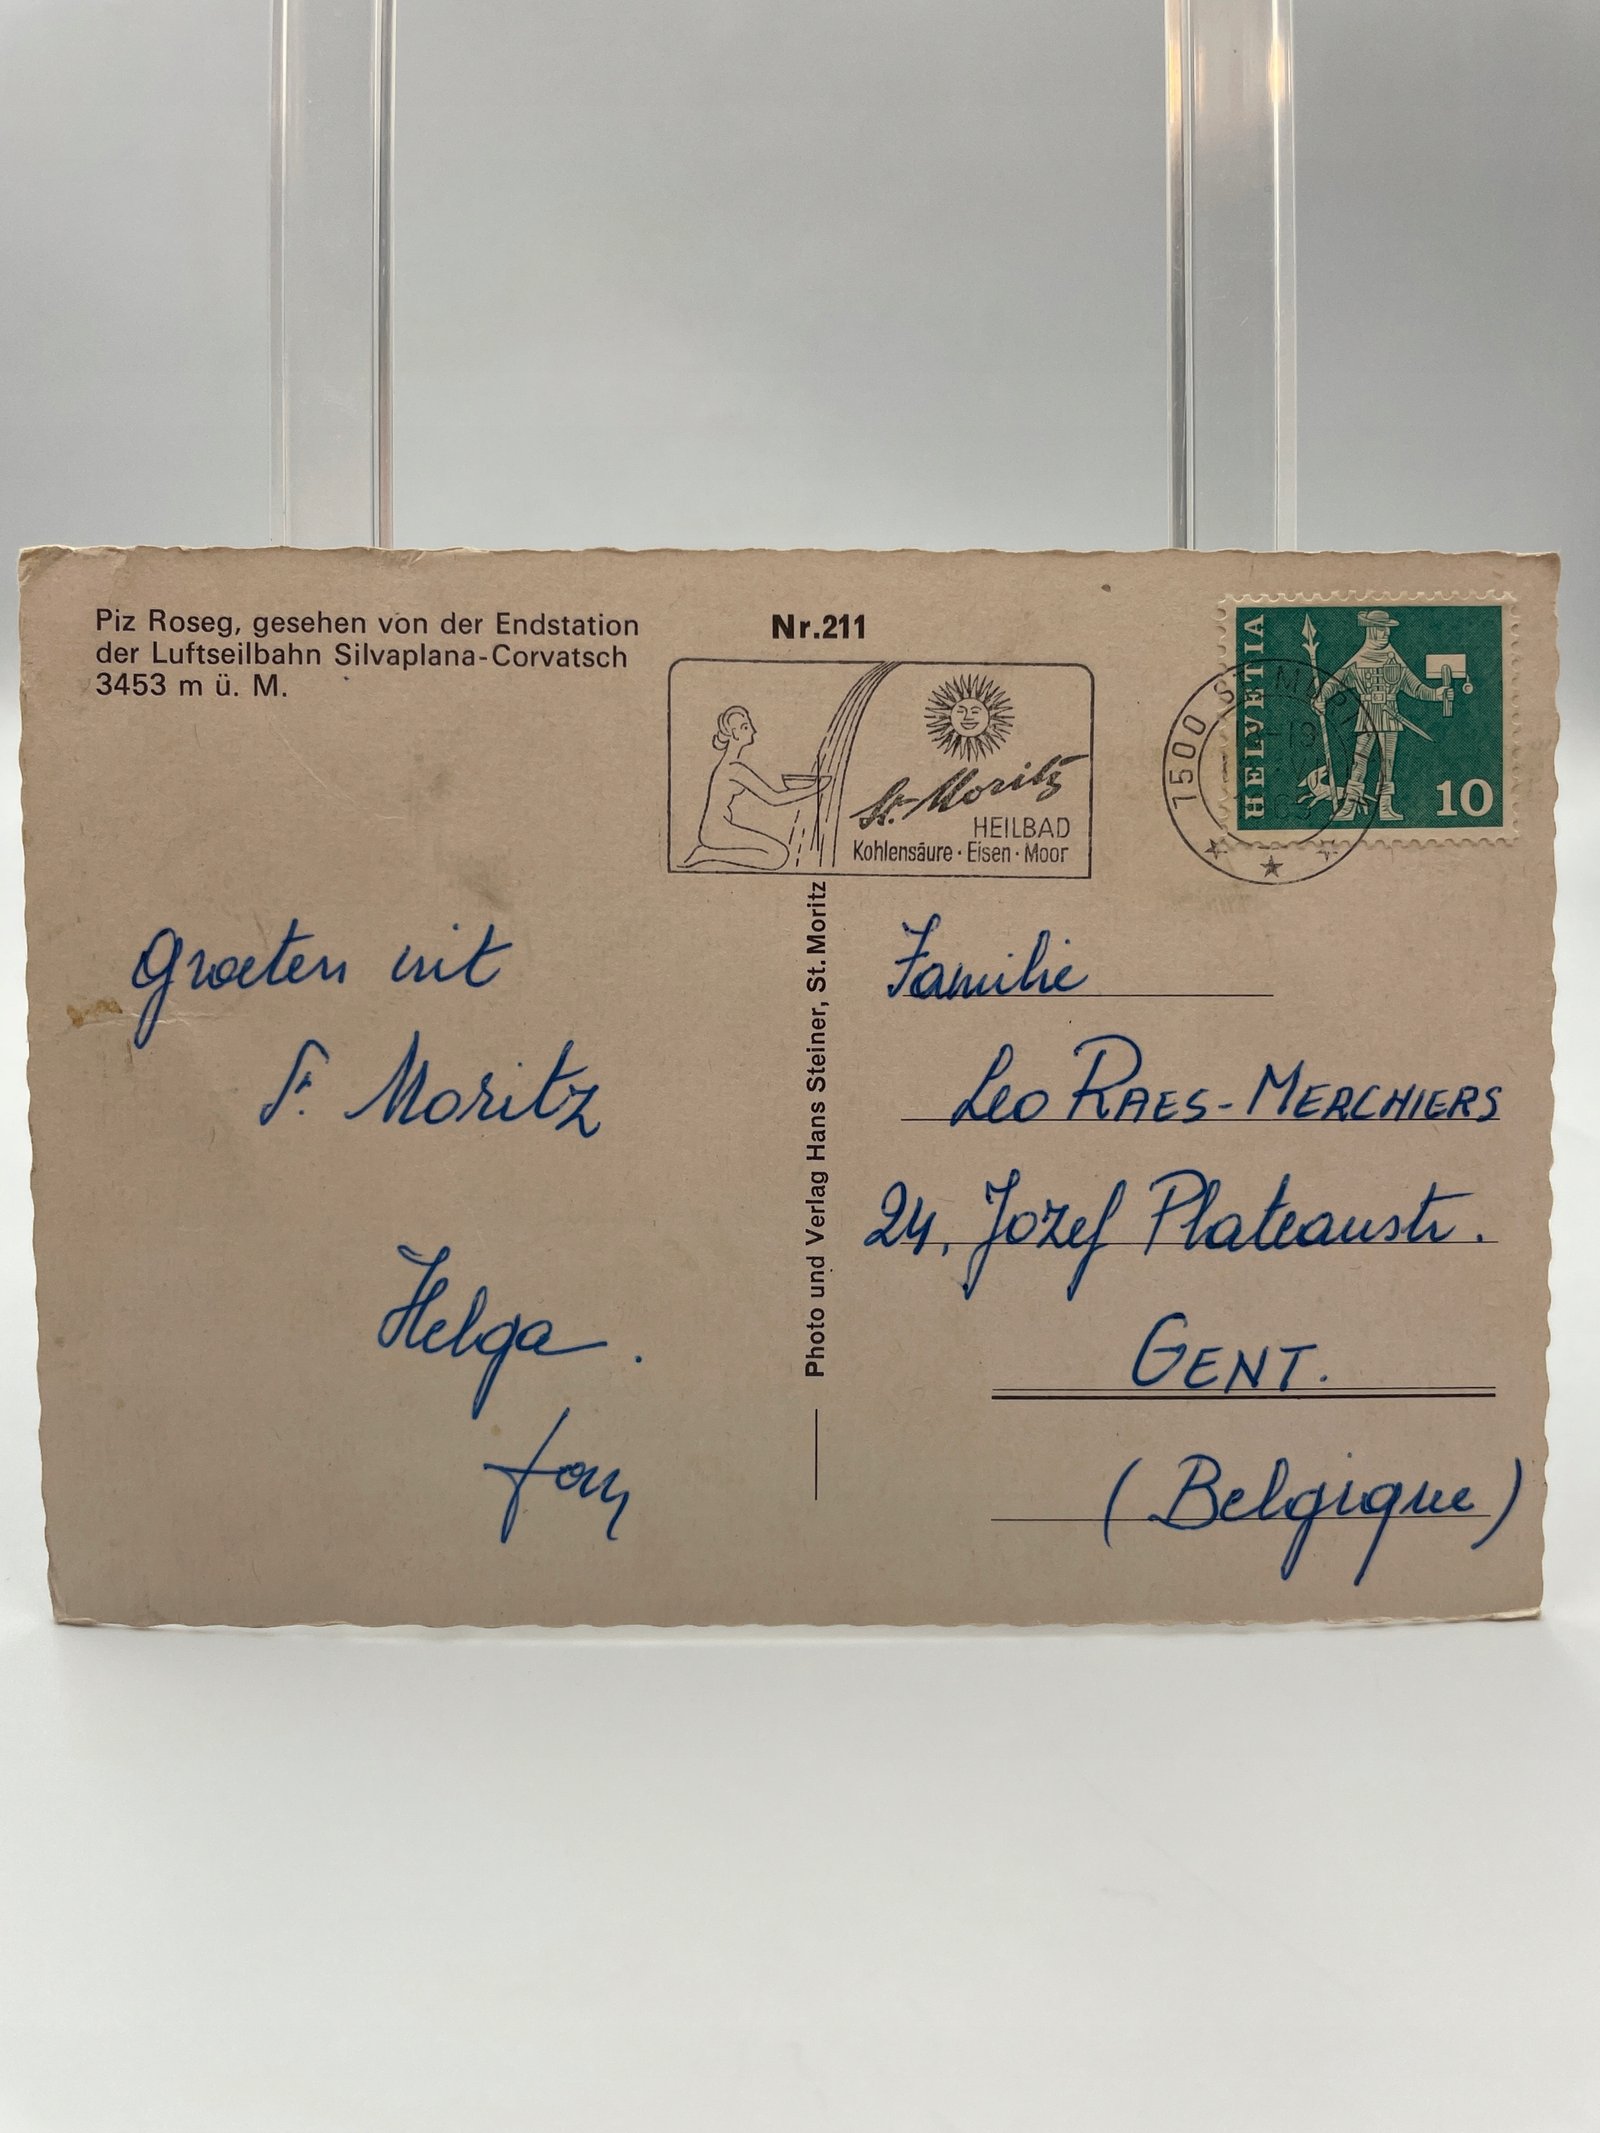 Piz Roseg, gesehen von der Endstation
der Luftseilbahn Silvaplana-Corvatsch
3453 m ü. M.
Nr.211
St. Moritz
HEILBAD
Kohlensäure · Eisen · Moor
7500 ST. MORITZ
HELVETIA
10
Groeten uit
St. Moritz
Helga.
Photo und Verlag Hans Steiner, St. Moritz
Familie
Leo RAES-MERCHIERS
24, Jozef Plateaustr.
GENT.
(Belgique)